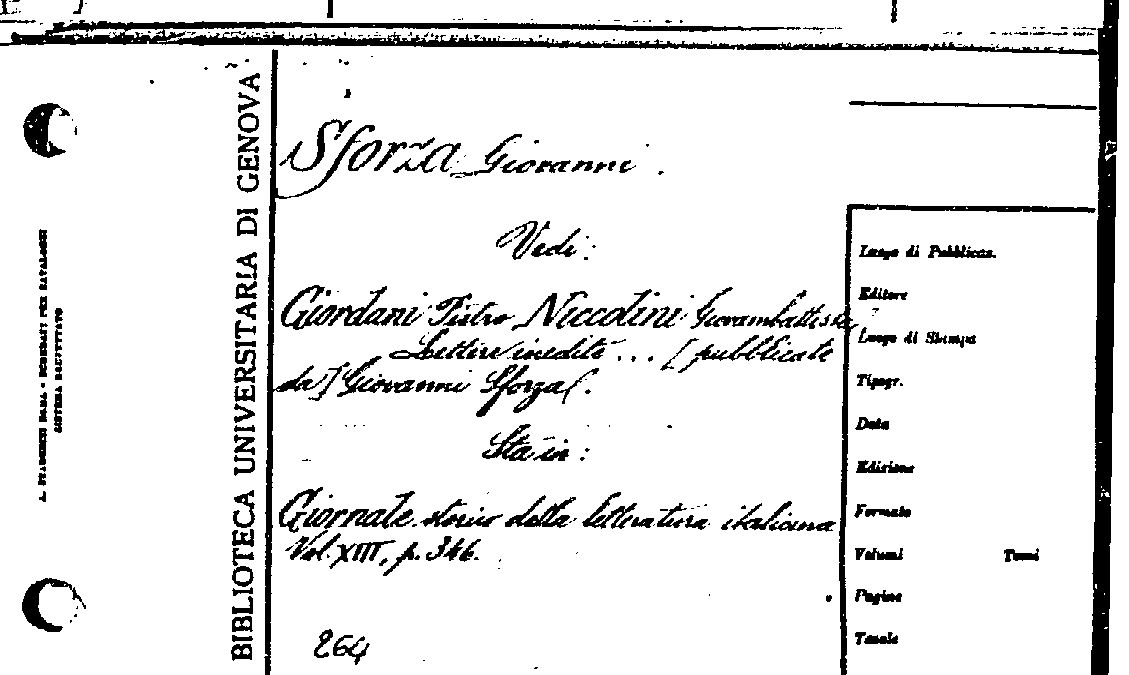 BIBLIOTECA UNIVERSITARIA DI GENOVA
Sforza Giovanni.
Vedi:
Giordani Pietro Niccolini Giovambattista
Lettere inedite ... [pubblicate
da] Giovanni Sforza.
Sta in:
Giornale storico della letteratura italiana
Vol. XIII, p. 346.
264
Luogo di Pubblicaz.
Editore
Luogo di Stampa
Tipogr.
Data
Edizione
Formato
Volumi Tomi
Pagine
Tavole